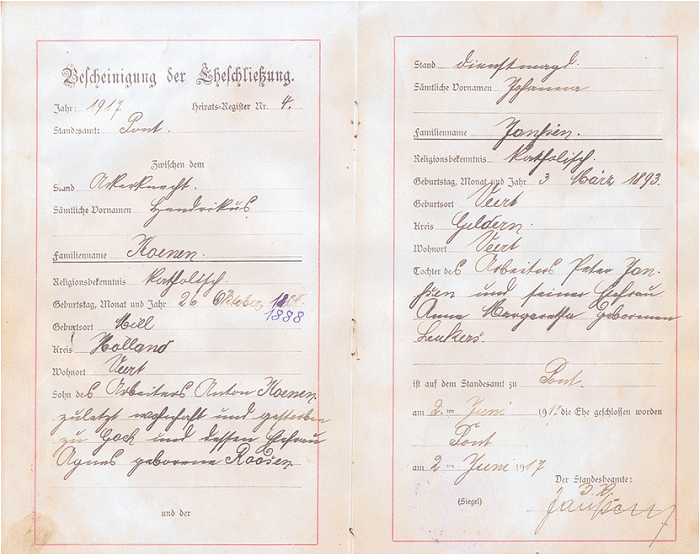 Bescheinigung der Eheschließung.
Jahr: 1917 Heirats-Register Nr. 4.
Standesamt: Pont.
Zwischen dem
Stand Ackerknecht.
Sämtliche Vornamen Hendrikus
Familienname Koenen.
Religionsbekenntnis katholisch.
Geburtstag, Monat und Jahr 26 Oktober
1888
Geburtsort Mill
Kreis Holland
Wohnort Veert
Sohn des Arbeiters Anton Koenen,
zuletzt wohnhaft und gestorben
zu Goch und dessen Ehefrau
Agnes geborene Roosen
und der
Stand Dienstmagd.
Sämtliche Vornamen Johanna
Familienname Janssen.
Religionsbekenntnis katholisch.
Geburtstag, Monat und Jahr 3 März 1893.
Geburtsort Veert
Kreis Geldern.
Wohnort Veert
Tochter des Arbeiters Peter Jan-
ssen und seiner Ehefrau
Anna Margaretha geborenen
ist auf dem Standesamt zu Pont.
am 2. ten Juni 191 die Ehe geschlossen worden
Pont
am 2 ten Juni 1917
Der Standesbeamte:
(Siegel)
J. V.
Janssen